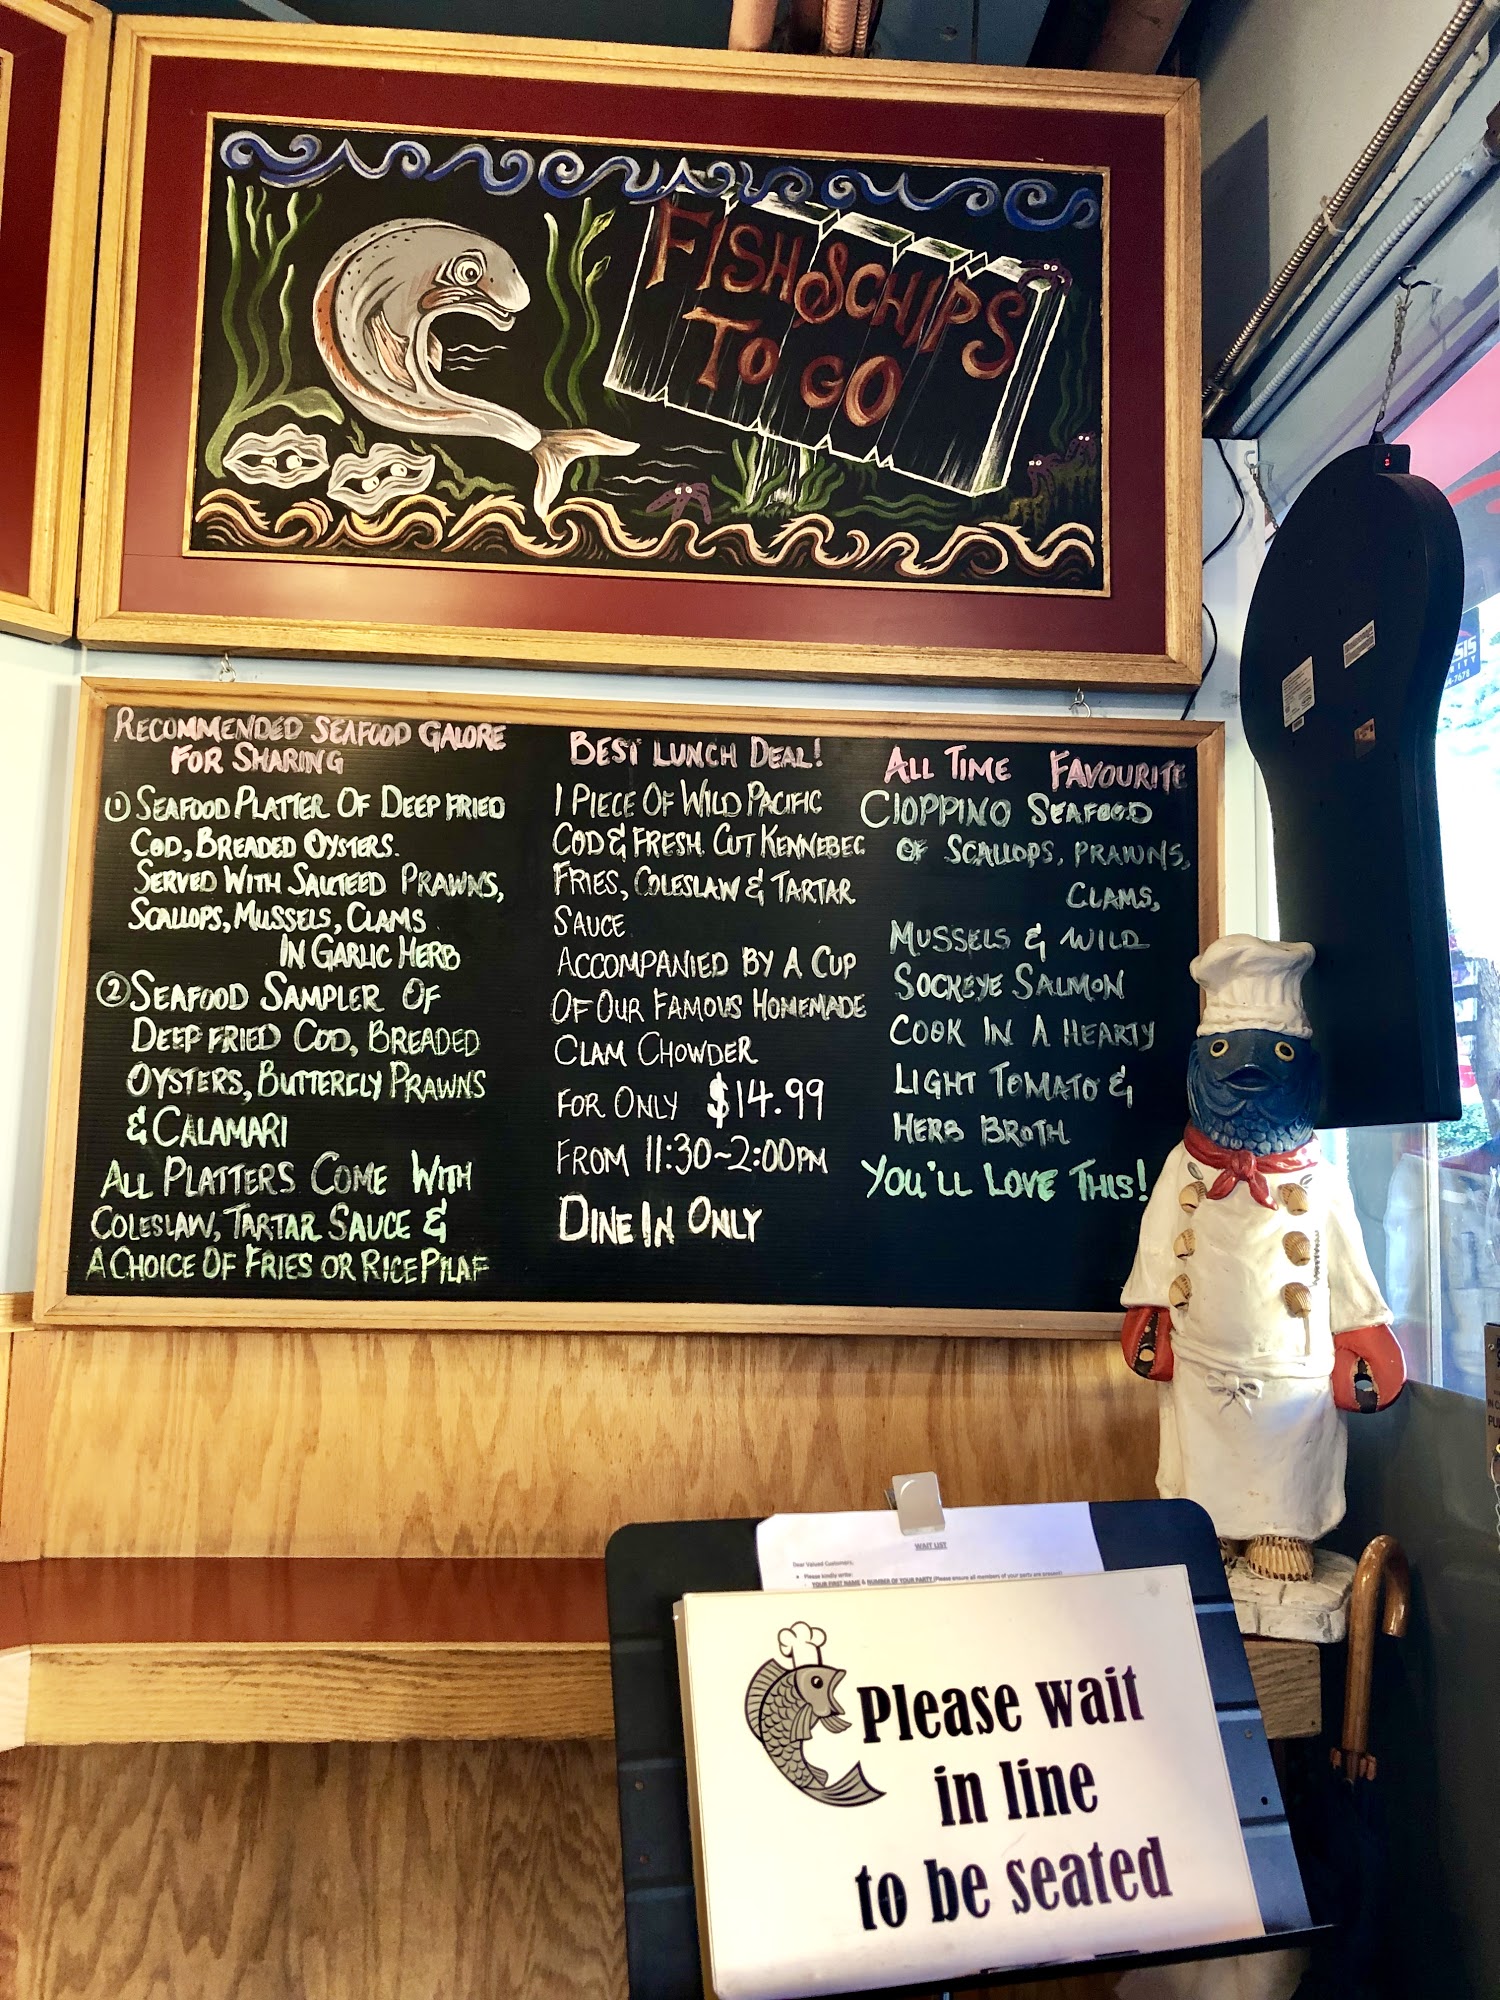 FISH & CHIPS
TO GO
RECOMMENDED SEAFOOD GALORE
FOR SHARING
① SEAFOOD PLATTER OF DEEP FRIED
COD, BREADED OYSTERS.
SERVED WITH SAUTEED PRAWNS,
SCALLOPS, MUSSELS, CLAMS
IN GARLIC HERB
② SEAFOOD SAMPLER OF
DEEP FRIED COD, BREADED
OYSTERS, BUTTERFLY PRAWNS
& CALAMARI
ALL PLATTERS COME WITH
COLESLAW, TARTAR SAUCE &
A CHOICE OF FRIES OR RICE PILAF
BEST LUNCH DEAL!
1 PIECE OF WILD PACIFIC
COD & FRESH CUT KENNEBEC
FRIES, COLESLAW & TARTAR
SAUCE
ACCOMPANIED BY A CUP
OF OUR FAMOUS HOMEMADE
CLAM CHOWDER
FOR ONLY $14.99
FROM 11:30~2:00PM
DINE IN ONLY
ALL TIME FAVOURITE
CIOPPINO SEAFOOD
OF SCALLOPS, PRAWNS,
CLAMS,
MUSSELS & WILD
SOCKEYE SALMON
COOK IN A HEARTY
LIGHT TOMATO &
HERB BROTH
YOU'LL LOVE THIS!
WAIT LIST
Dear Valued Customers,
Please kindly write:
YOUR FIRST NAME & NUMBER OF YOUR PARTY (Please ensure all members of your party are present)
Please wait
in line
to be seated